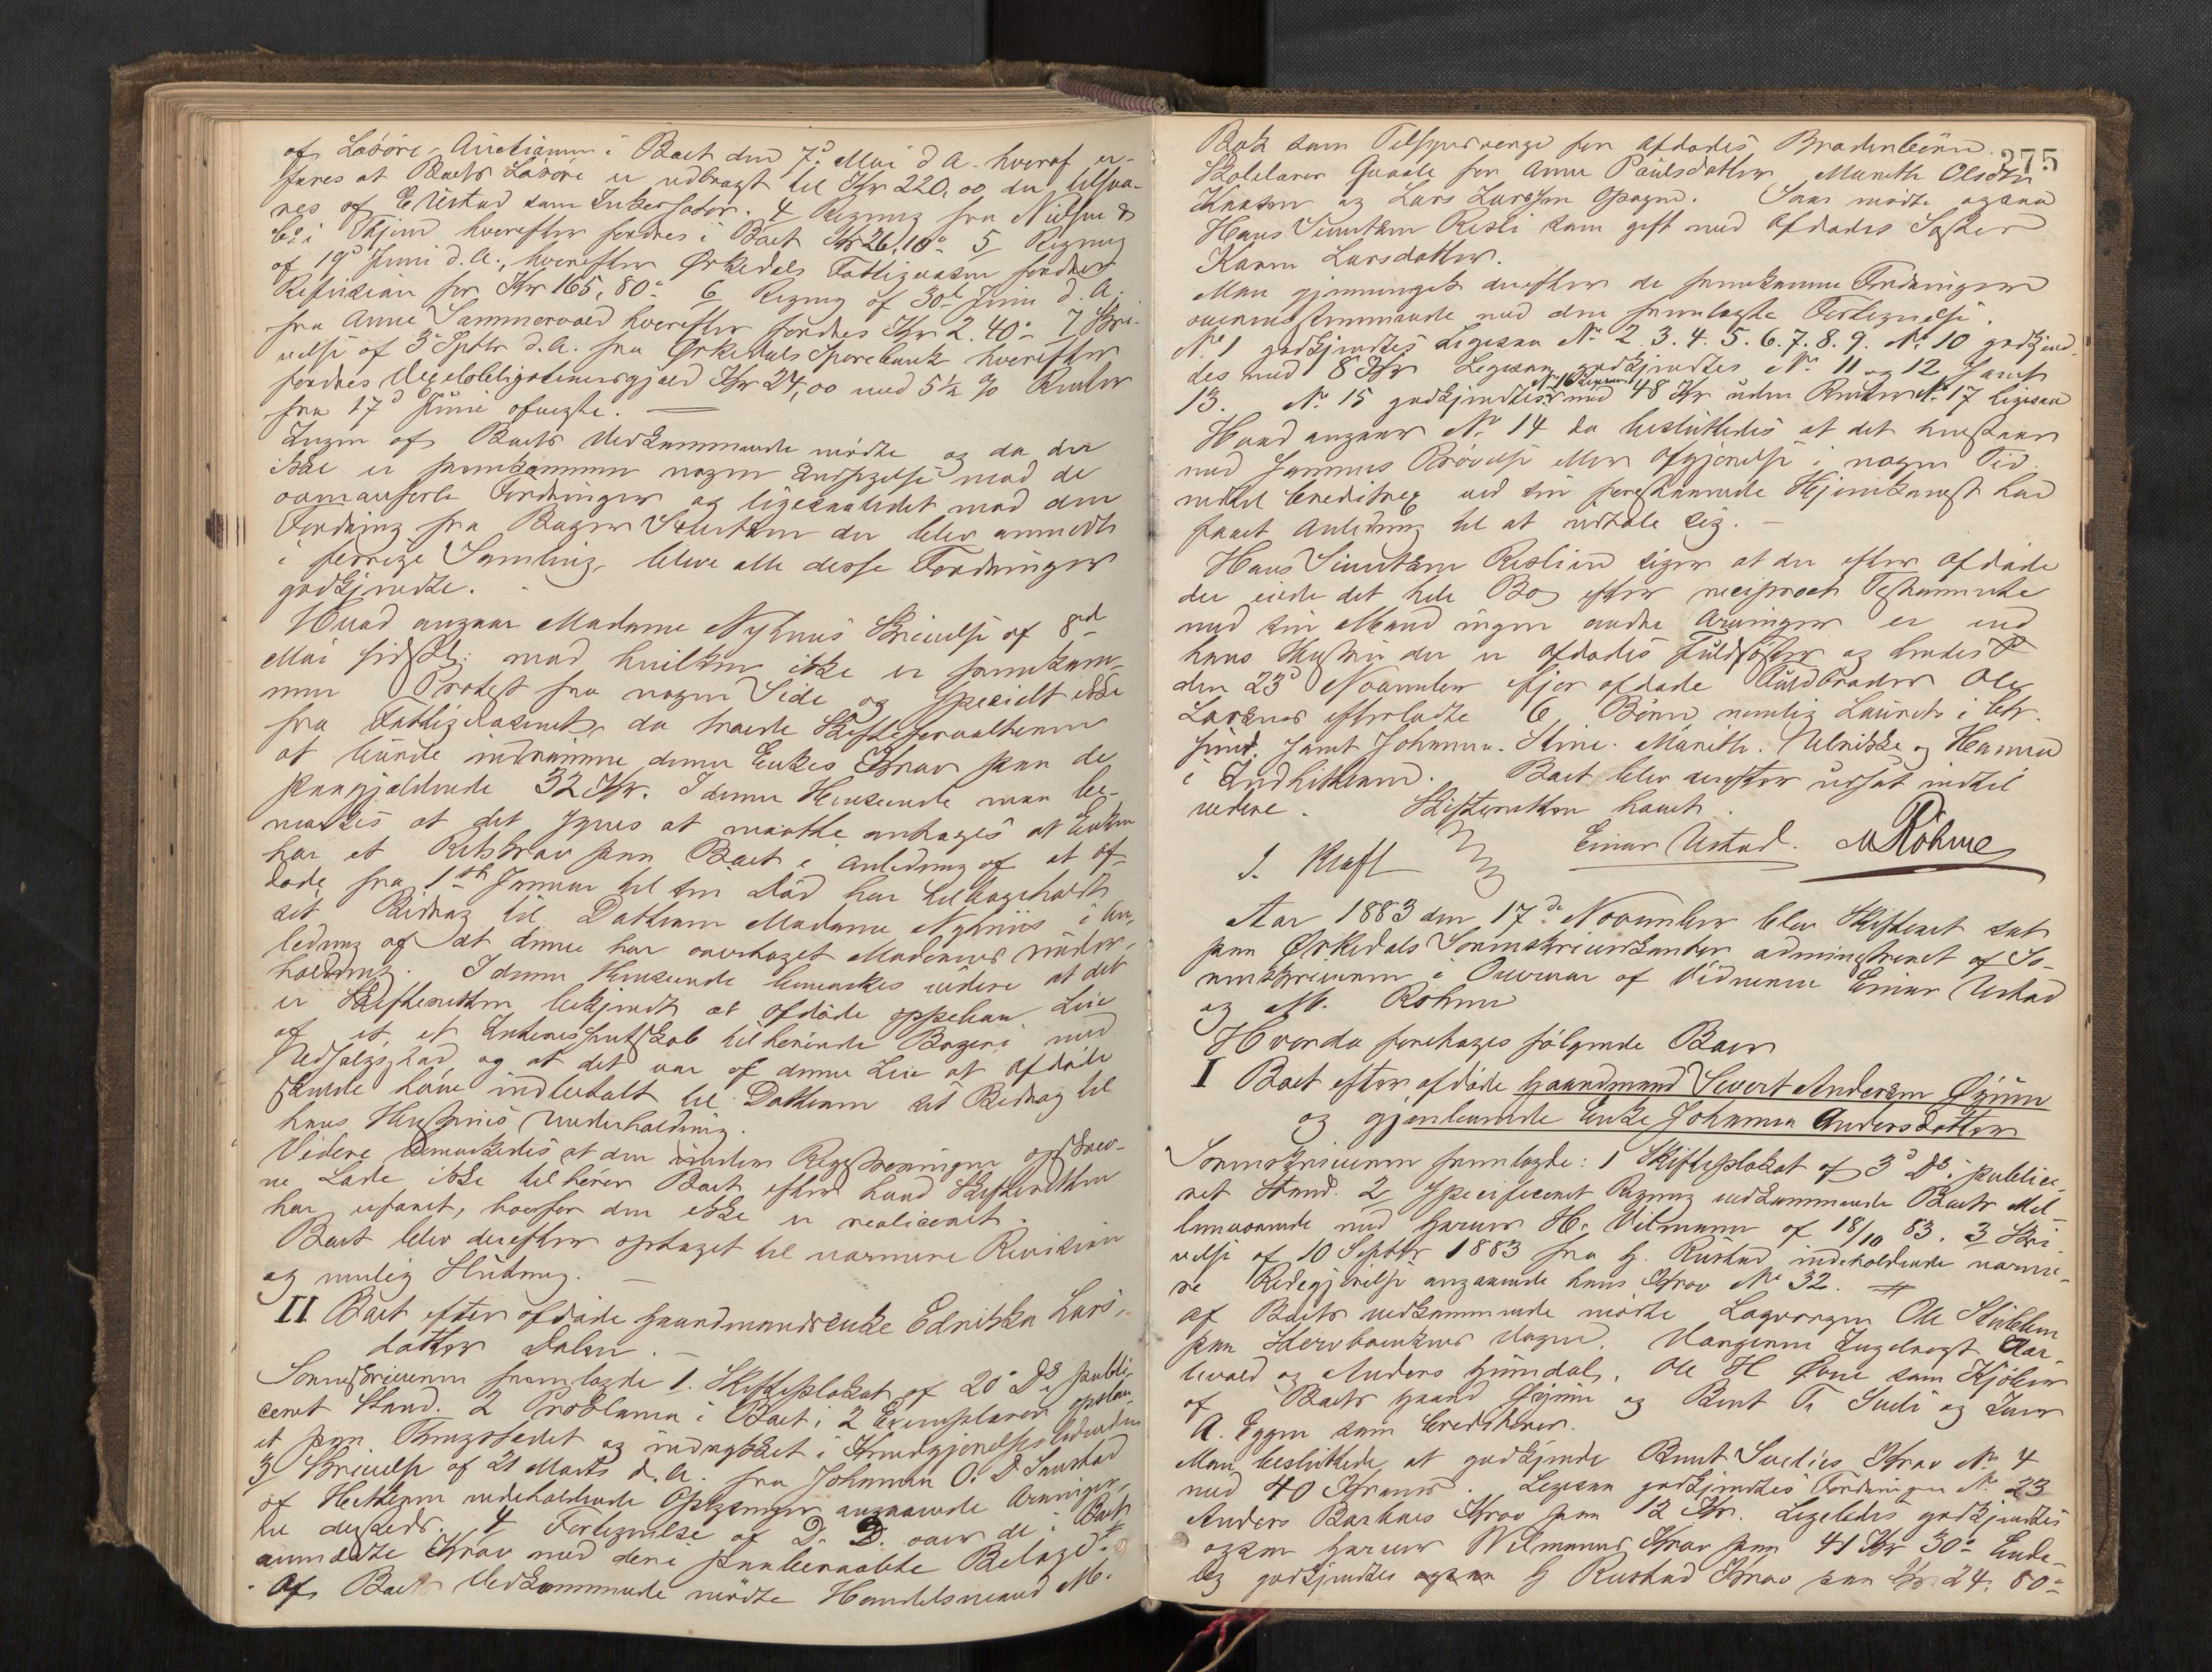 af Løsøre-Auctionen i Boet den 7de Mai d. A. hvoraf er-
fares at Boets Løsøre er udbragt til Kr 220,00 der tilsva-
res af E Ustad som Inkassator. 4 Regning fra Nielsen &
Co i Thjem hvorefter fordres i Boet Kr 26,10 ø 5 Regning
af 19de Juni d. A., hvorefter Ørkedals Fattigvæsen fordrer
Refusion for Kr 165,80 ø 6 Regning af 30te Juni d. A.
fra Anne Sammervold hvorefter fordres Kr 2.40 ø 7 Skri-
velse af 3 Septbr d. A. fra Ørkedals Sparebank hvorefter
fordres Vexelobligationsgjæld Kr 24,00 med 5½ % Renter
fra 17de Juni afvigte. —
Ingen af Boets Vedkommende mødte og da der
ikke er fremkommen nogen Indsigelse mod de
ovenanførte Fordringer og ligesaalidet mod den
Fordring fra Bager der blev anmeldt
i forrige Samling, bleve alle disse Fordringer
godkjendte.
Hvad angaar Madame Nyhuus Skrivelse af 8de
Mai sidstl: mod hvilken ikke er fremkom-
men Protest fra nogen Side og specielt ikke
fra Fattigvæsenet, da troede Skifteforvalteren
at kunde indrømme denne Enkes Krav paa de
paagjældende 32 Kr. I denne Henseende maa be-
mærkes at det synes at maatte antages at Enken
har et Retskrav paa Boet i Anledning af at af-
døde fra 1ste Januar til sin Død har tilbageholdt
sit Bidrag til Datteren Madame Nyhuus i An-
ledning af at denne har overtaget Moderens under-
holdning. I denne Henseende bemærkes videre at det
er Skifteretten bekjendt at afdøde oppebar Leie
af et, et Interessentskab tilhørende Bageri med
Udsalgssted, og at det var af denne Leie at afdøde
skulde have indbetalt til Datteren sit Bidrag til
hans Hustrues Underholdning.
Videre bemærkedes at den under Registreringen opskrev-
ne Lade ikke tilhører Boet efter hvad Skifteretten
har erfaret, hvorfor den ikke er realiceret.
Boet blev derefter optaget til nærmere Revision
og mulig Slutning. —
II Boet efter afdøde Gaardmandsenke Edriska Lars-
datter Dalen. —
Sorenskriveren fremlagde 1. Skifteplakat af 20 Ds publi-
ceret Stand. 2 Proklama i Boet i 2 Exemplarer opslaa-
et paa Thingstedet og indrykket i Kundgjørelsestidenden
3 Skrivelse af 21 Marts d. A. fra Johannes O. D Snustad
af indeholdende Opgaver angaaende Arvinger,
ne dersteds. 4 Fortegnelse af D. D. over de i Boet
anmeldte Krav med dere paaberaabte Belæg.
Af Boets Vedkommende mødte Handelsmand M.
275
Bak som Tilsynsværge for afdødes Broderbørn.
Skolelærer Gaaale for Anne Paulsdatter, Marethe Olsdtr
Knaton og Lars Larssen Opagn. Saa mødte ogsaa
Hans Simonsen Risli som gift med afdødes Søster
Karen Larsdatter.
Man gjennemgik derefter de fremkomne Fordringer
overensstemmende med den fremlagte Fortegnelse.
No 1 godkjendtes Ligesaa No 2. 3. 4. 5. 6. 7. 8. 9. No 10 godkjend-
tes med 8 Kr Ligesaa godkjendtes No 11 og 12 samt
13. No 15 godkjendtes No 16 Ligesaa med 48 Kr uden Renter No 17 Ligesaa
Hvad angaar No 14 da besluttedes at det henstaar
med sammes Prøvelse eller Afgjørelse i nogen Tid
indtil Creditrex ved sin forestaaende Hjemkomst har
faaet Anledning til at udtale sig. —
Hans Simonsen Reslien siger at der efter afdøde
der eiede det hele Bo efter reciproct Testamente
med sin Mand ingen andre Arvinger er end
hans Hustru der er afdødes Fuldsøster og hendes
den 23de November ifjor afdøde Fuldbroder Ole
Larsens efterladte 6 Børn nemlig Laurits i Chr.
sund, samt Johanna. Stine. Marith. Ulrikke og Hanna
i Indhikland. Boet blev derefter udsat indtil
videre. Skifteretten hævet.
J. Kraft Einar Ustad. M Röhme
Aar 1883 den 17de November blev Skifteret sat
paa Ørkedals Sorenskriverkontor administreret af So-
renskriveren i Overvær af Vidnerne Einar Ustad
og M. Rohme
Hvorda foretoges følgende Boer
I Boet efter afdøde Gaardmand Sivert Andersen Øjum
og gjenlevende Enke Johanna Andersdatter
Sorenskriveren fremlagde: 1 Skifteplakat af 3de Ds, publice-
ret Stand. 2 Specificeret Regning vedkommende Boets Mel-
lemværende med Garver H. Vilmann af 18/10 83. 3 Skri-
velse af 10 Septbr 1883 fra G. Rustad indeholdende nærme-
re Redegjørelse angaaende hans Krav No 32. #
af Boets vedkommende mødte Lagværgen Ole Stubben
paa Stervboenkens Vegne. Værgerne Ingebregt Aar-
livold og Anders Gumdal. Ole H Øvre som Kjøber
af Boets Gaard Øjum og Bent T. Sulie og Iver
A. Eggen som Creditorer.
Man besluttede at godkjende Bent Sulies Krav No 4
med 40 Kroner. Ligesaa godkjendtes Fordringen No 23
Anders Barhaus Krav paa 12 Kr. Ligeledes godkjendtes
ogsaa Garver Wilmanns Krav paa 41 Kr 30 ø Ende-
lig godkjendtes ogsaa G Rustad Krav paa Kr. 24, 80 ø